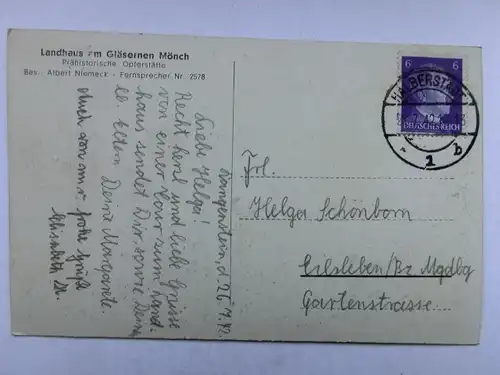 Landhaus am Gläsernen Mönch
Prähistorische Opferstätte
Bes.: Albert Niemeck - Fernsprecher Nr. 2578
6 6
DEUTSCHES REICH
HALBERSTADT
1 b
Langenstein, d. 26.7.42.
Liebe Helga!
Recht herzl. und liebe Grüsse
von einer Tour zum Land-
haus sendet Dir, sowie Deinen
lb. Eltern Deine Margarete.
Auch von mir frohe Grüße
Elisabeth
Frl.
Helga Schönborn
Eilsleben/Bz Mgdbg
Gartenstrasse.